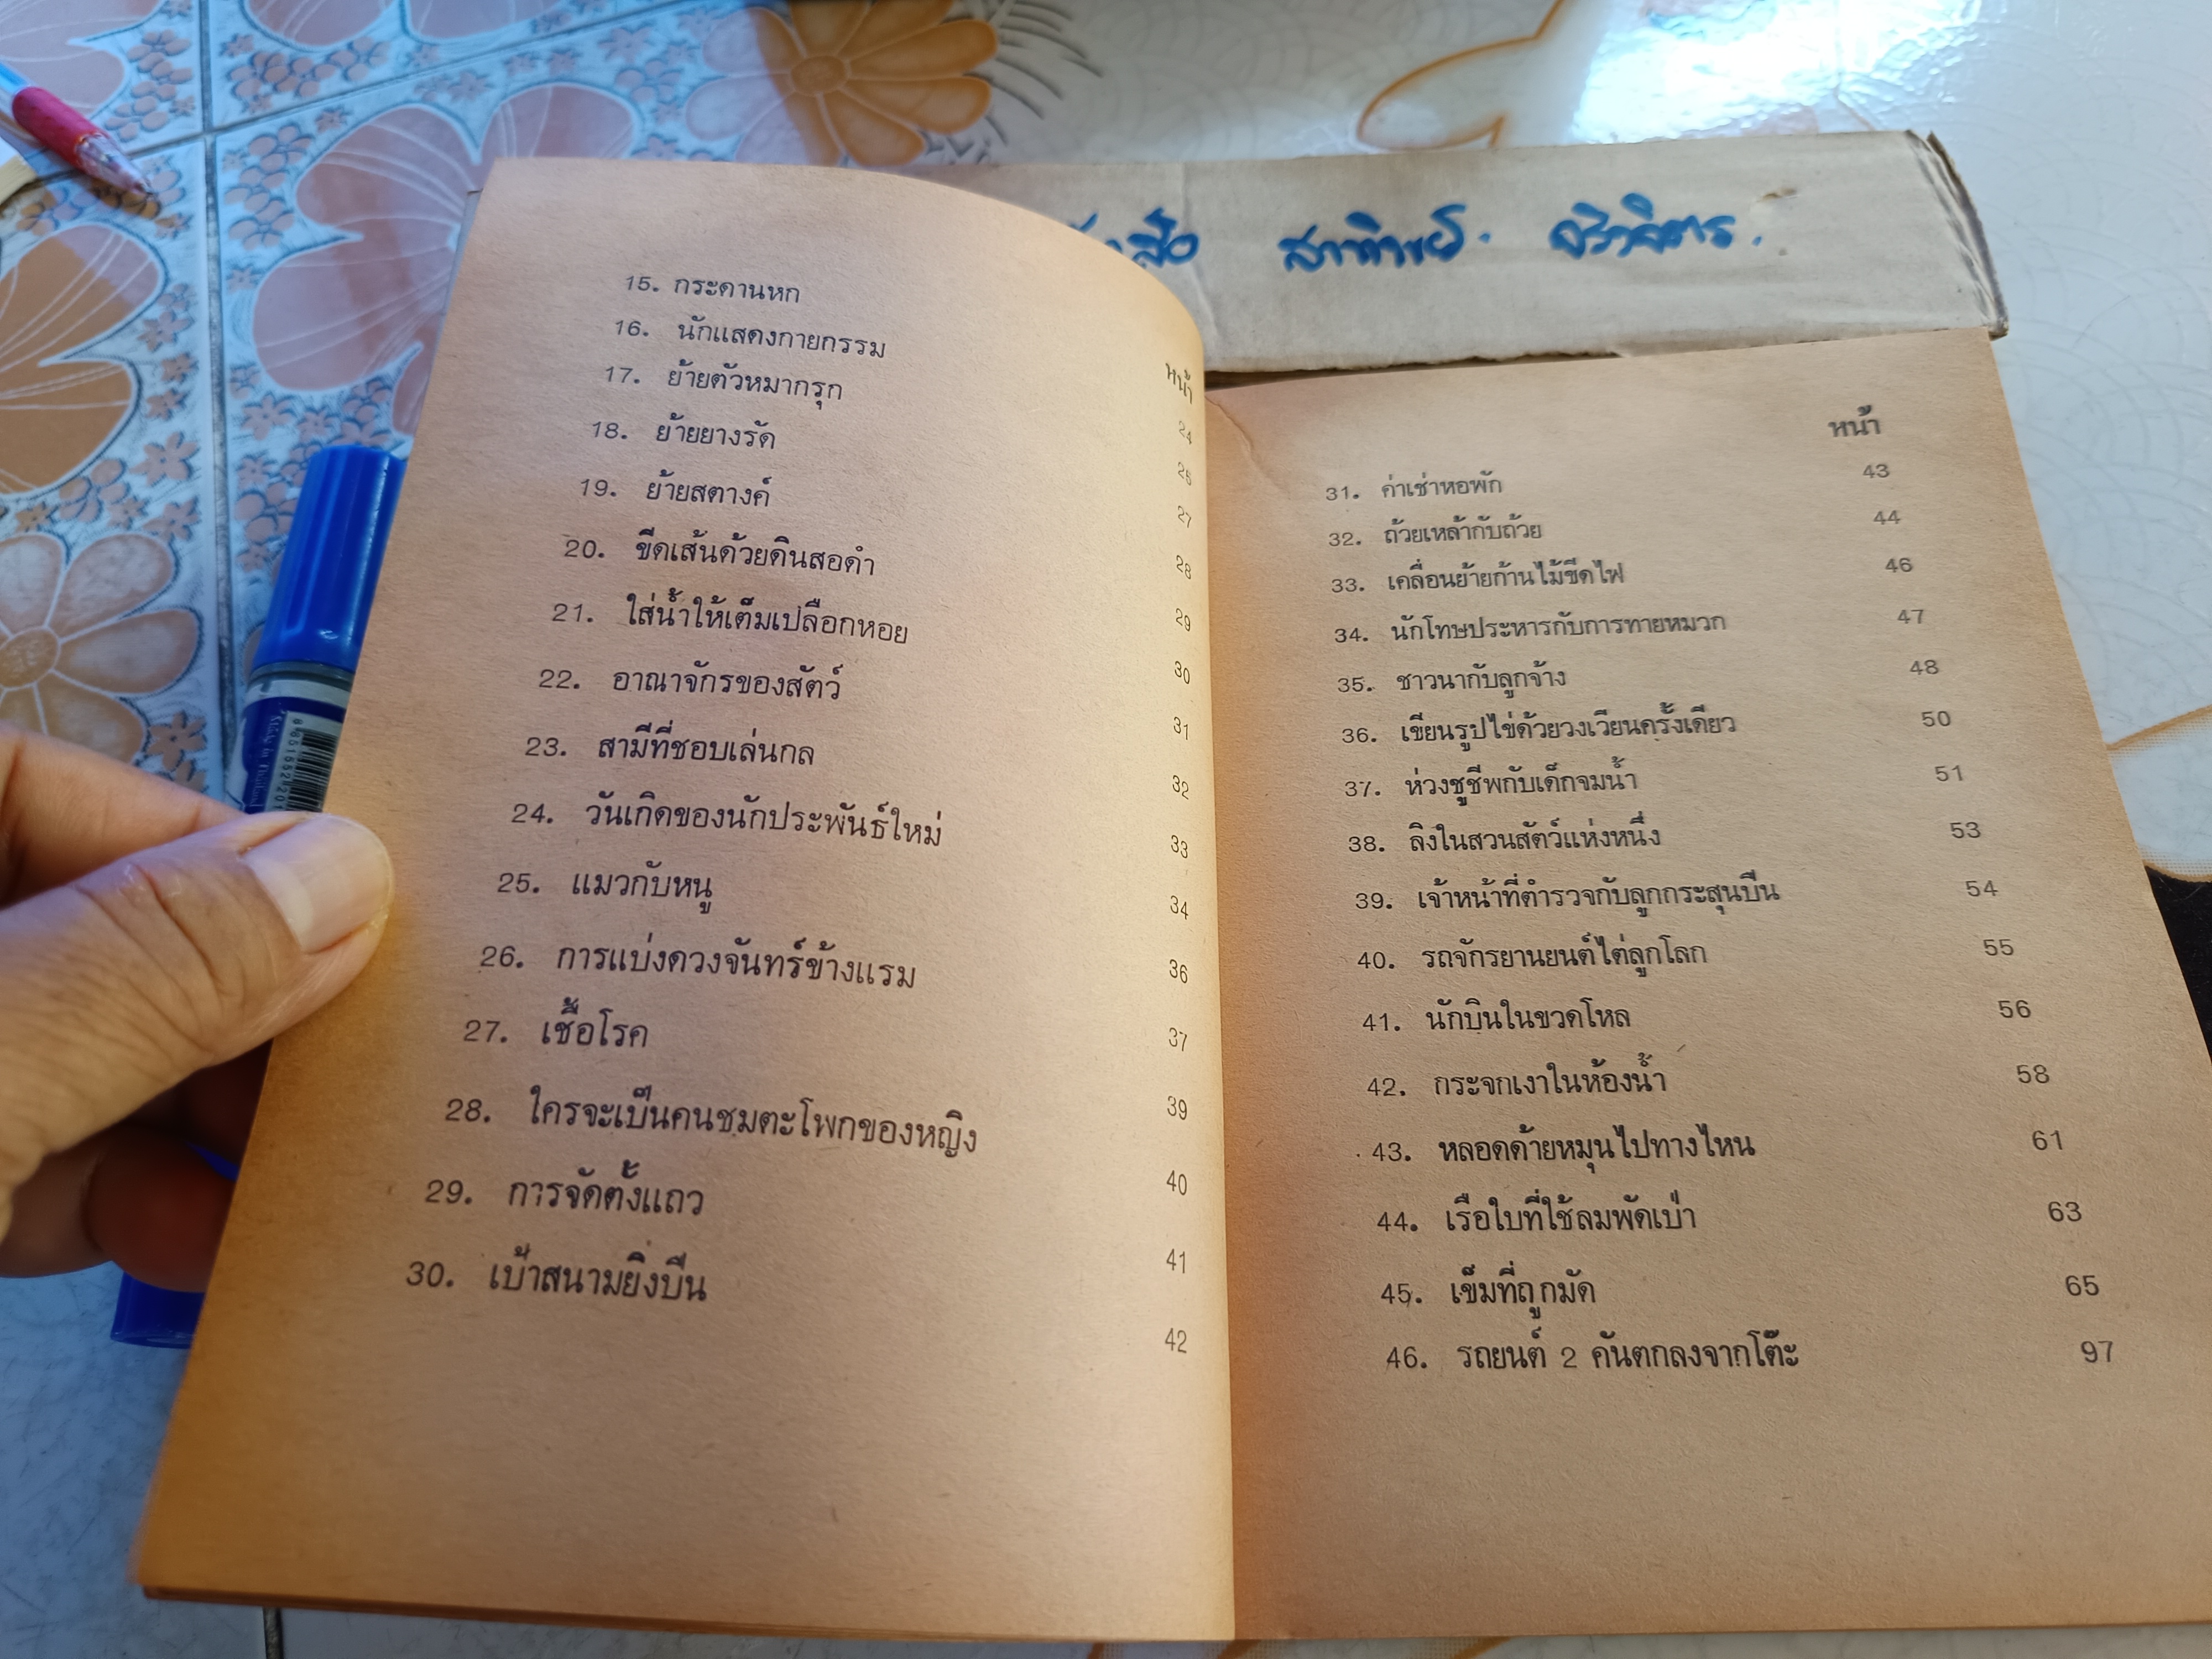 สาทิพย์.
15. กระดานหก
16. นักแสดงกายกรรม
17. ย้ายตัวหมากรุก
18. ย้ายยางรัด
19. ย้ายสตางค์
20. ขีดเส้นด้วยดินสอดำ
21. ใส่น้ำให้เต็มเปลือกหอย
22. อาณาจักรของสัตว์
23. สามีที่ชอบเล่นกล
24. วันเกิดของนักประพันธ์ใหม่
25. แมวกับหนู
26. การแบ่งดวงจันทร์ข้างแรม
27. เชื้อโรค
28. ใครจะเป็นคนชมตะโพกของหญิง
29. การจัดตั้งแถว
30. เป้าสนามยิงปืน
หน้า
24
27
28
29
30
31
32
33
34
36
37
39
40
41
42
หน้า
31. ค่าเช่าหอพัก 43
32. ถ้วยเหล้ากับถ้วย 44
33. เคลื่อนย้ายก้านไม้ขีดไฟ 46
34. นักโทษประหารกับการทายหมวก 47
35. ชาวนากับลูกจ้าง 48
36. เขียนรูปไข่ด้วยวงเวียนครั้งเดียว 50
37. ห่วงชูชีพกับเด็กจมน้ำ 51
38. ลิงในสวนสัตว์แห่งหนึ่ง 53
39. เจ้าหน้าที่ตำรวจกับลูกกระสุนปืน 54
40. รถจักรยานยนต์ไต่ลูกโลก 55
41. นักบินในขวดโหล 56
42. กระจกเงาในห้องน้ำ 58
43. หลอดด้ายหมุนไปทางไหน 61
44. เรือใบที่ใช้ลมพัดเป่า 63
45. เข็มที่ถูกมัด 65
46. รถยนต์ 2 คันตกลงจากโต๊ะ 97